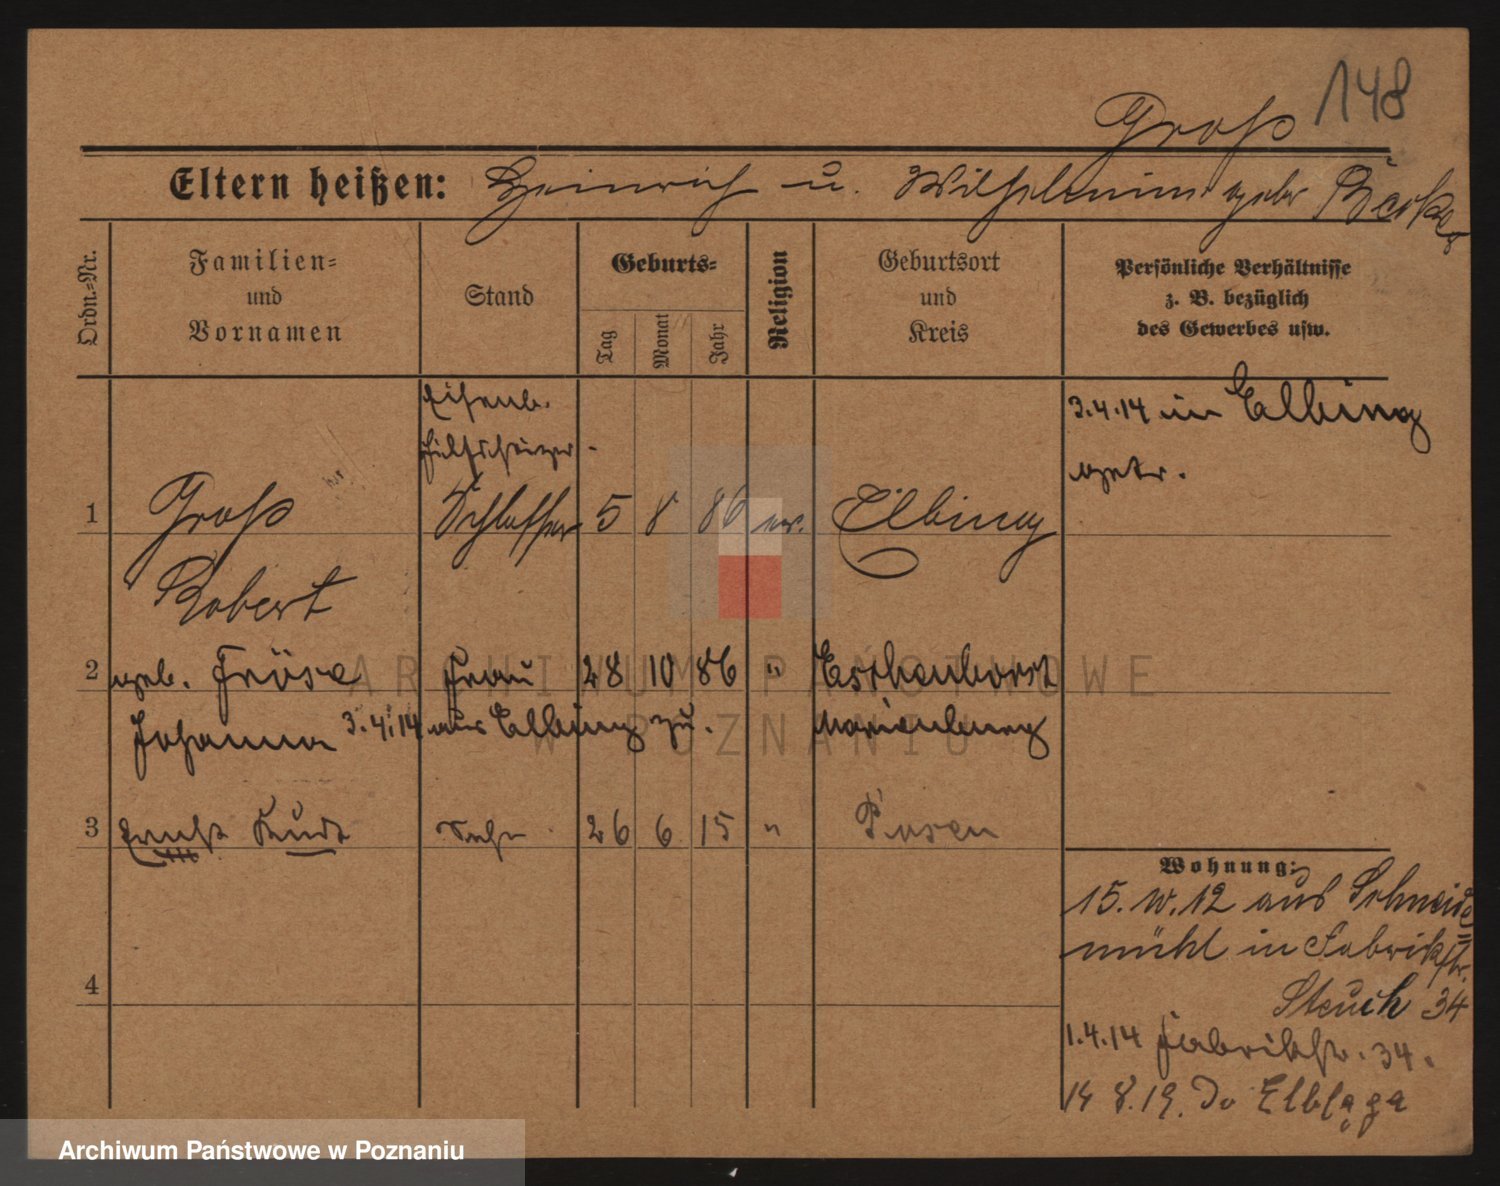 148
Groß
Eltern heißen: Heinrich u. Wilhelmine geb. Becker
Ordn.-Nr.
Familien-
und
Vornamen
Stand
Geburts-
Tag
Monat
Jahr
Religion
Geburtsort
und
Kreis
Persönliche Verhältnisse
z. B. bezüglich
des Gewerbes usw.
Eisenb.
Hilfsheizer
1 Groß Schlosser 5 8 86 ev. Elbing
Robert
3.4.14 in Elbing
getr.
2 geb. Fröse Frau 28 10 86 " Eschenhorst
Johanna 3.4.14 aus Elbing zu. Marienburg
3 Ernst Kurt Sohn 26 6 15 " Posen
4
Wohnung:
15. 10. 12 aus Schneide=
mühl in Fabrikstr.
34
1.4.14 Fabrikstr. 34.
14 8.19. Do Elbląga
ARCHIWUM PAŃSTWOWE
W POZNANIU
Archiwum Państwowe w Poznaniu